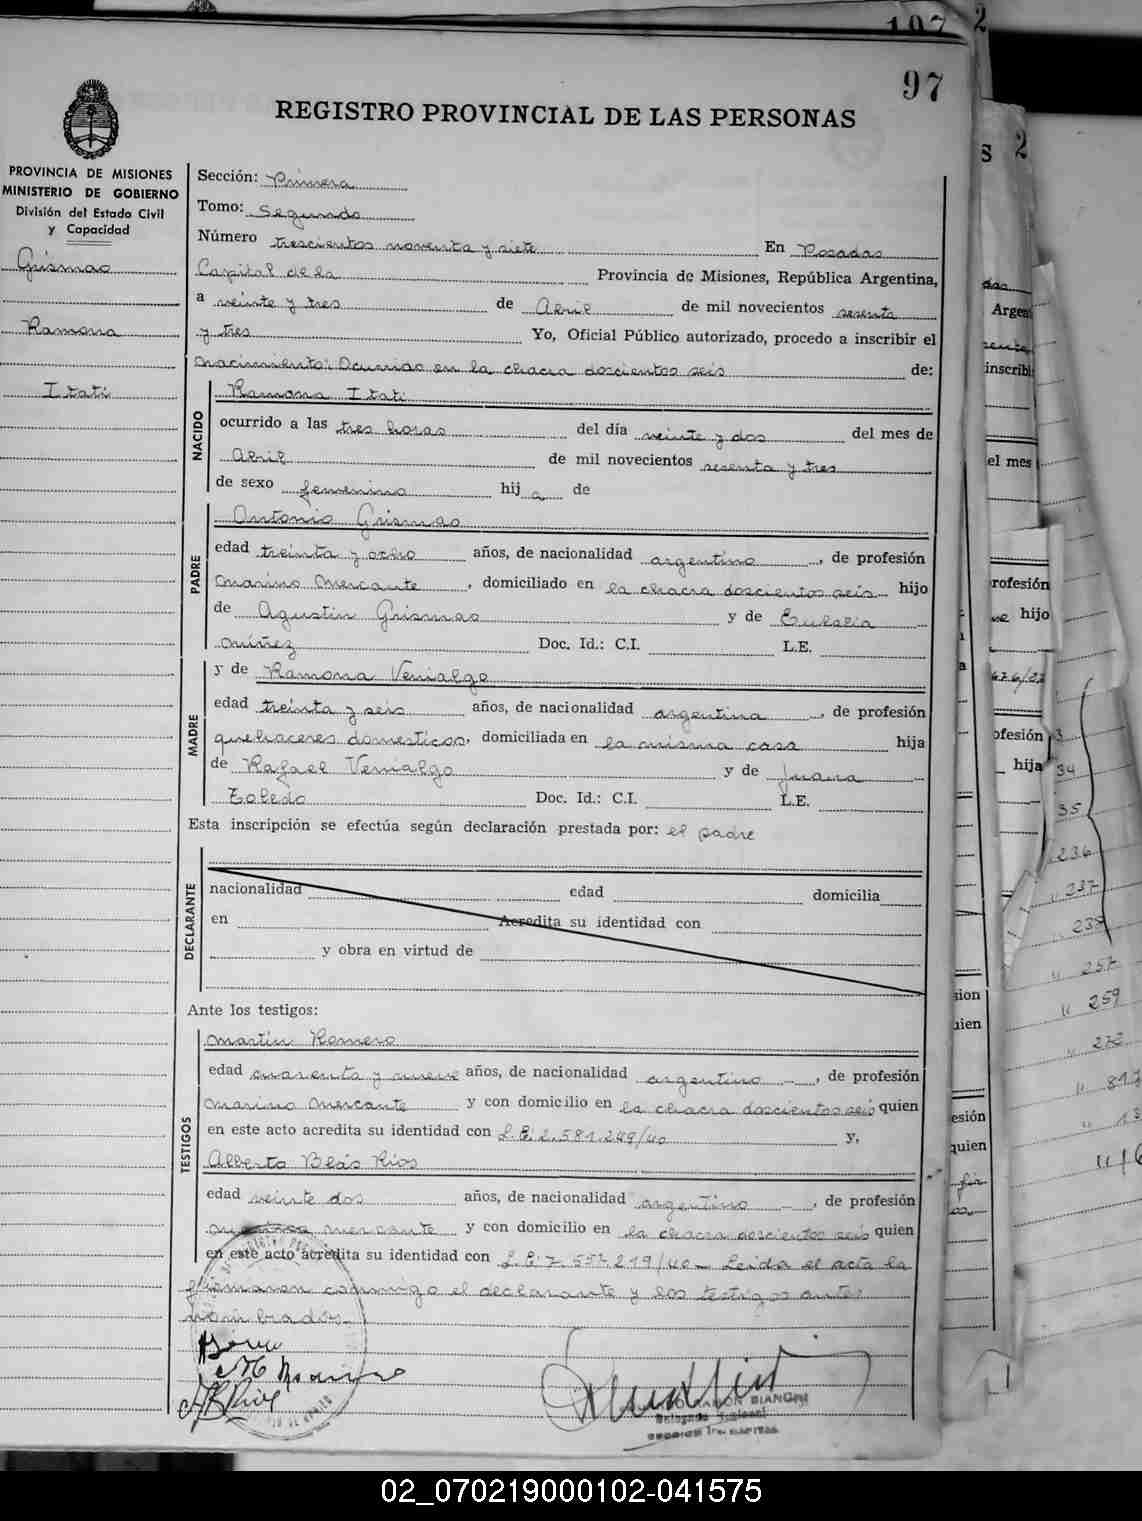 197
2
97
REGISTRO PROVINCIAL DE LAS PERSONAS
PROVINCIA DE MISIONES
MINISTERIO DE GOBIERNO
División del Estado Civil
y Capacidad
Grismao
Ramona
Itatí
Sección: Primera
Tomo: Segundo
Número trescientos noventa y siete En Posadas
Capital de la Provincia de Misiones, República Argentina,
a veinte y tres de Abril de mil novecientos sesenta
y tres Yo, Oficial Público autorizado, procedo a inscribir el
nacimiento: Ocurrido en la chacra doscientos seis de:
NACIDO
Ramona Itati
ocurrido a las tres horas del día veinte y dos del mes de
Abril de mil novecientos sesenta y tres
de sexo femenino hija de
PADRE
Antonio Grismao
edad treinta y ocho años, de nacionalidad argentino, de profesión
marino mercante, domiciliado en la chacra doscientos seis hijo
de Agustin Grismao y de Eulalia
Núñez Doc. Id.: C.I. L.E.
MADRE
y de Ramona Venialgo
edad treinta y seis años, de nacionalidad argentina, de profesión
quehaceres domesticos, domiciliada en la misma casa hija
de Rafael Venialgo y de Juana
Toledo Doc. Id.: C.I. L.E.
Esta inscripción se efectúa según declaración prestada por: el padre
DECLARANTE
nacionalidad edad domicilia
en Acredita su identidad con
y obra en virtud de
Ante los testigos:
TESTIGOS
Martin Romero
edad cuarenta y nueve años, de nacionalidad argentino, de profesión
marino mercante y con domicilio en la chacra doscientos seis quien
en este acto acredita su identidad con L.E: 2.581.249/40 y,
Alberto Blás Rios
edad veinte dos años, de nacionalidad argentino, de profesión
mercante y con domicilio en la chacra doscientos seis quien
en este acto acredita su identidad con L.E: 7. /40 - Leida el acta la
firmaron conmigo el declarante y los testigos antes
nombrados.-
RAMON BIANCHI
S 2
Argen
inscribi
el mes
rofesión
hijo
ofesión
hija
34
35
236
237
238
257
259
272
sion
uien
esión
quien
02_070219000102-041575